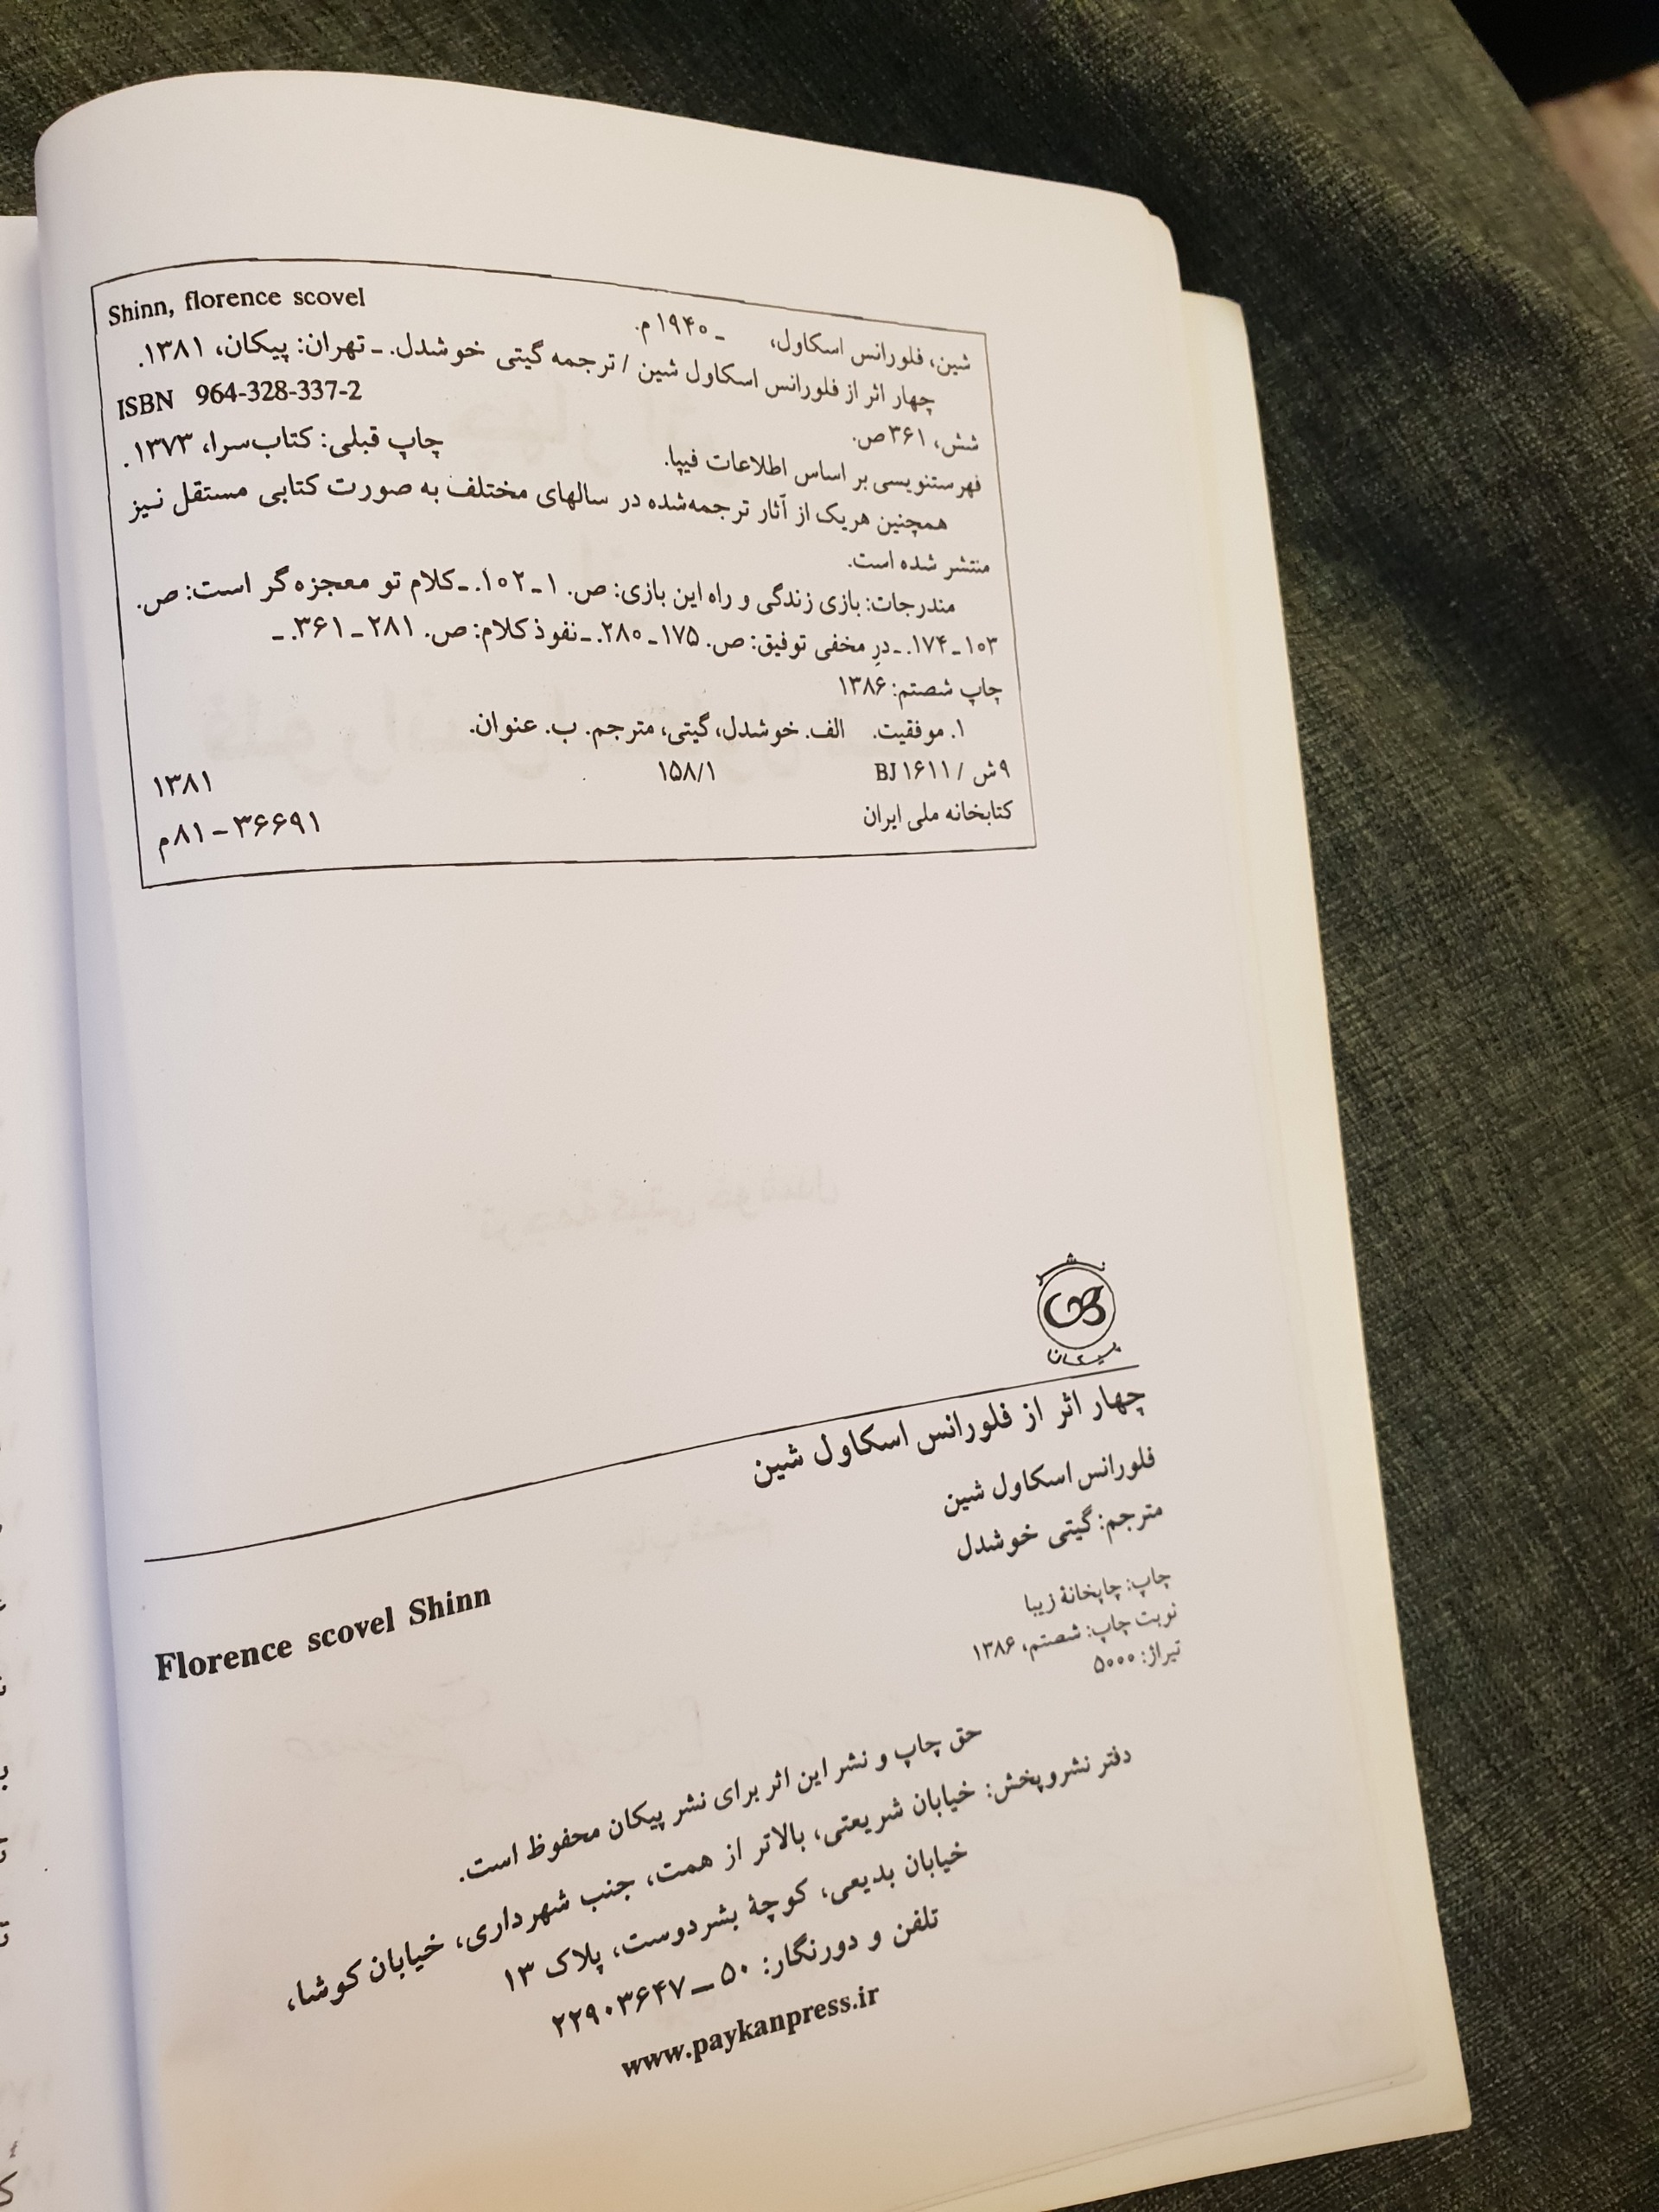 Shinn, florence scovel
شین، فلورانس اسکاول، ـ ۱۹۴۰ م.
چهار اثر از فلورانس اسکاول شین / ترجمه گیتی خوشدل. ـ تهران: پیکان، ۱۳۸۱.
ISBN 964-328-337-2
شش، ۳۶۱ ص.
فهرستنویسی بر اساس اطلاعات فیپا. چاپ قبلی: کتاب‌سرا، ۱۳۷۳.
همچنین هریک از آثار ترجمه‌شده در سالهای مختلف به صورت کتابی مستقل نیز
منتشر شده است.
مندرجات: بازی زندگی و راه این بازی: ص. ۱ـ۱۰۲. ـ کلام تو معجزه‌گر است: ص.
۱۰۳ـ۱۷۴. ـ درِ مخفی توفیق: ص. ۱۷۵ـ۲۸۰. ـ نفوذ کلام: ص. ۲۸۱ـ۳۶۱. ـ
چاپ شصتم: ۱۳۸۶
۱. موفقیت. الف. خوشدل، گیتی، مترجم. ب. عنوان.
۹ش / BJ ۱۶۱۱ ۱۵۸/۱ ۱۳۸۱
کتابخانه ملی ایران ۳۶۶۹۱ – ۸۱م
نشر
پیکان
چهار اثر از فلورانس اسکاول شین
فلورانس اسکاول شین
مترجم: گیتی خوشدل
Florence scovel Shinn
چاپ: چاپخانهٔ زیبا
نوبت چاپ: شصتم، ۱۳۸۶
تیراژ: ۵۰۰۰
حق چاپ و نشر این اثر برای نشر پیکان محفوظ است.
دفتر نشروپخش: خیابان شریعتی، بالاتر از همت، جنب شهرداری، خیابان کوشا،
خیابان بدیعی، کوچهٔ بشردوست، پلاک ۱۳
تلفن و دورنگار: ۵۰ ــ ۲۲۹۰۳۶۴۷
www.paykanpress.ir